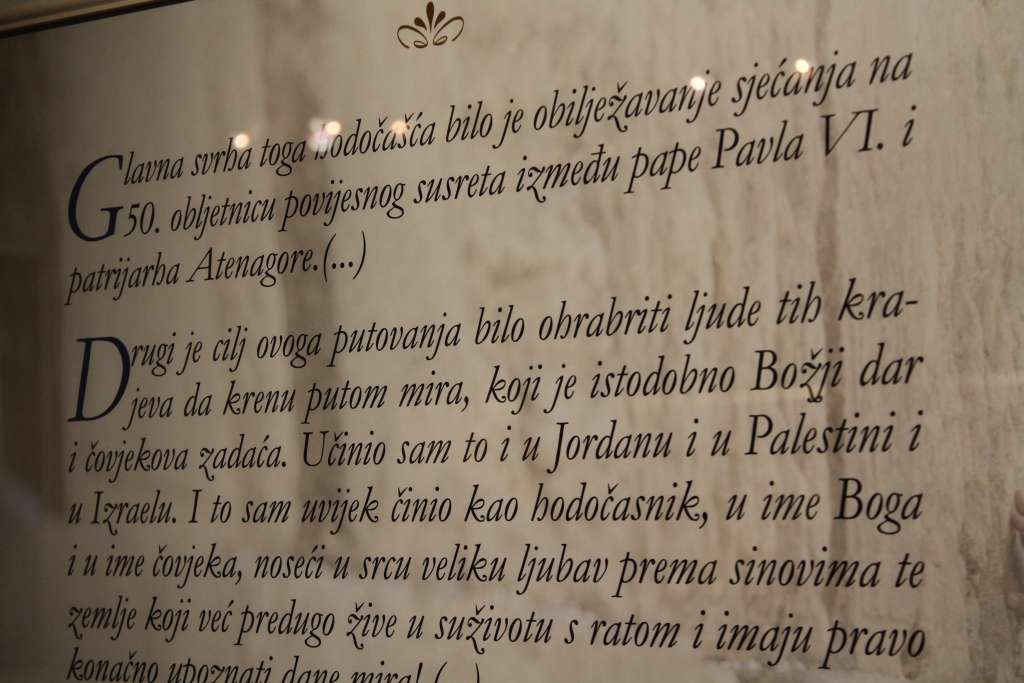 Glavna svrha toga hodočašća bilo je obilježavanje sjećanja na
50. obljetnicu povijesnog susreta između pape Pavla VI. i
patrijarha Atenagore.(...)
Drugi je cilj ovoga putovanja bilo ohrabriti ljude tih kra-
jeva da krenu putom mira, koji je istodobno Božji dar
i čovjekova zadaća. Učinio sam to i u Jordanu i u Palestini i
u Izraelu. I to sam uvijek činio kao hodočasnik, u ime Boga
i u ime čovjeka, noseći u srcu veliku ljubav prema sinovima te
zemlje koji već predugo žive u suživotu s ratom i imaju pravo
konačno upoznati dane mira! (...)